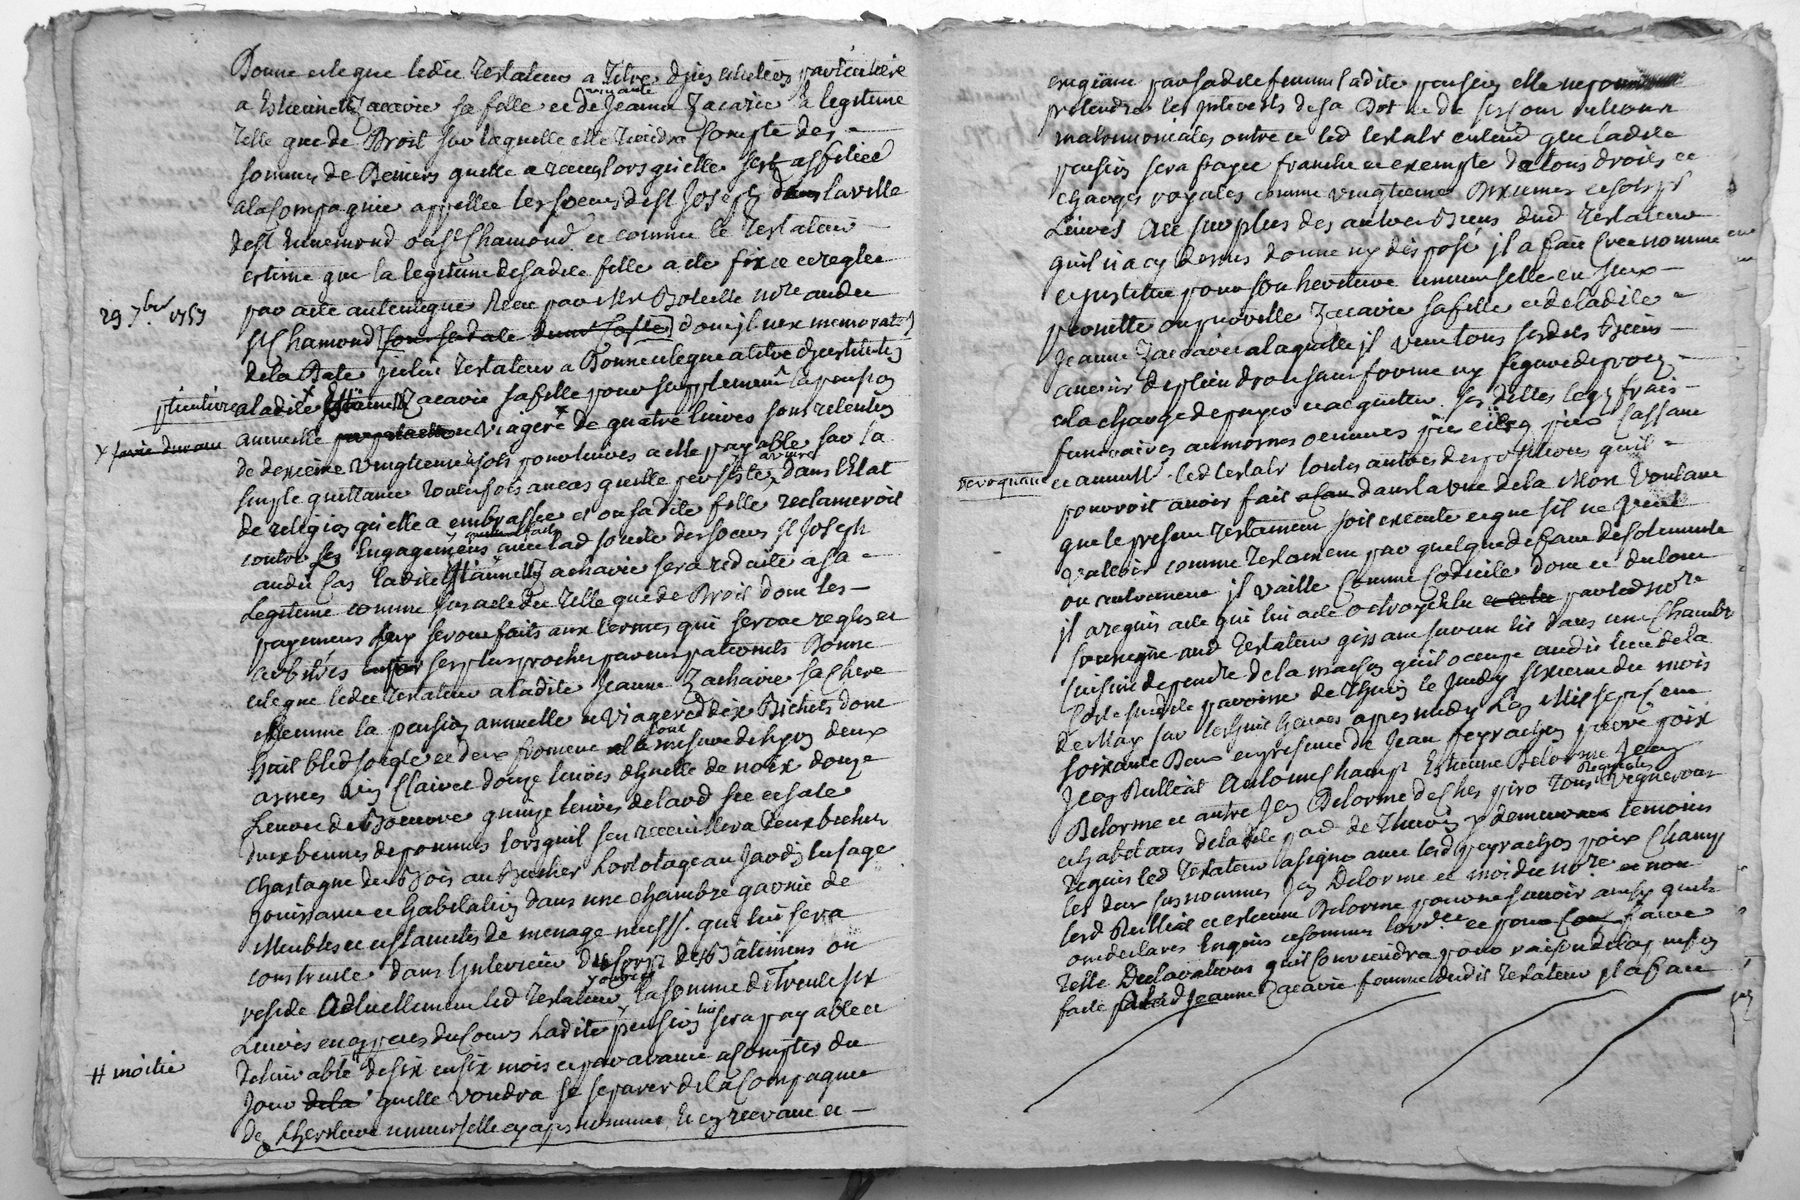 Donne et legue ledit Testateur a Titre d'institution particuliere
a Estiennette Zacarie sa fille et de vivante Jeanne Zacarie la legitime
Telle que de Droit sur laquelle elle tiendra Compte des
sommes de Deniers quelle a receu lors qu'elle sest affiliée
a la Compagnie appellée les soeurs de st Joseph dans la ville
de st Ennemond ou st Chamond et comme le Testateur
estime que la legitime de sadite fille a ete fixée et reglée
par acte autentique Receu par Me Boteille nore audit
29 7bre 1757
st Chamond sous sa date dont il nex memoratif
de la Date icelui Testateur a Donne et legue a titre d'institution
ptiuliere a ladite Estiennette Zacarie sa fille pour supplement la pension
x
annuelle et viagere de quatre livres sous retention
de dexieme vingtieme sols pour livres a elle payable sur la
simple quittance Toutesfois au cas quelle persiste a vivre dans l'Etat
de religion qu'elle a embrassée et ou sadite fille reclameroit
contre ses Engagemens avec lad société des soeurs st Joseph
audit Cas ladite Estiennette Zacharie sera reduite a sa
Legitime comme jus a ete dit Telle que de Droit dont les
payemens seront faits aux termes qui seront reglés et
arbitrés ses plus proches parens paternels Donne
et legue ledit Testateur a ladite Jeanne Zacharie sa Chere
femme la pension annuelle et viagere de dix Bichets dont
huit bled soigle et deux froment mesure de Lyon deux
annees vin Clairet douze livres d'huille de noix douze
Livres de Boeurre quinze livres de lard sec et salé
deux bennes de pommes lorsquil sen receuillera deux bichets
Chastagne du Bois au Bucher hortolage au Jardin lusage
jouissance et habitation dans une chambre garnie de
Meubles et ustanciles de menage necess. qui lui sera
construite dans linterieur du Corps de Bâtimens ou
reside Actuellement led Testateur la somme de Trente six
Livres en especes du Cours ladite pension lui sera payable et
# moitié
delivrable de six en six mois et par avance a compter du
jour quelle voudra se separer de la Compagnie
de lheritiere universelle cy apres nommée Et en recevant et
exigeant par sadite femme ladite pension elle ne pourra
pretendre les interets de sa Dot ni de ses
matrimoniales outre ce led testatr entend que ladite
pension sera payee franche et exempte de tous droits et
charges royales comme vingtiemes Dixiemes et sols pr
Livres Au surplus des autres Biens dud Testateur
quil n'a cy dessus donné ny disposé il a fait creé nommé
et institue pour son heritiere universelle en
peronette ou pierrette Zacarie sa fille et de ladite
Jeanne Zaccarie a laquelle il veut tous sesdits biens
avenir de plein droit sans forme ny figure de procez
a la charge de payer et acquitter ses dettes legs frais
funeraires aumones oeuvres pies Cassant
revoquant
et annull. led testatr toutes autres dispositions quil
pourroit avoir fait dans la vue de la Mort Voulant
que le present Testament soit executé et que sil ne peut
valloir comme Testament par quelque deffaut de solemnité
ou autrement il vaille Comme Codicile dont et du tout
il a requis acte qui lui a ete octroyé par led Nore
soussigne aud Testateur gissant sur un lit dans une Chambre
Cuisine depandte de la maison quil occupe audit lieu de la
Coste susdite paroisse de Thurin le jeudy sixieme du mois
de May sur les huit heures apres midy Lan Mil sept cent
soixante Deux en presence de Jean feyrachon pierre poix
Jean Rullial Antoine Champ Estienne Delorme Jean
Delorme et autre Jean Delorme de Ches piro Tous Vignerons
et habitans de ladite par. de Thurin y demeurant temoins
requis led Testateur a signé avec lesd peyrachon poix Champ
les deux susnommés Jean Delorme et moidit nore et non
lesd Rullial et estienne Delorme pour ne savoir ainsi quils
ont declaré Enquis et sommés et pour faire
Telle Declarations quil Conviendra pour raison de la pnsion
faite a lad Jeanne Zacarie femme dudit Testateur